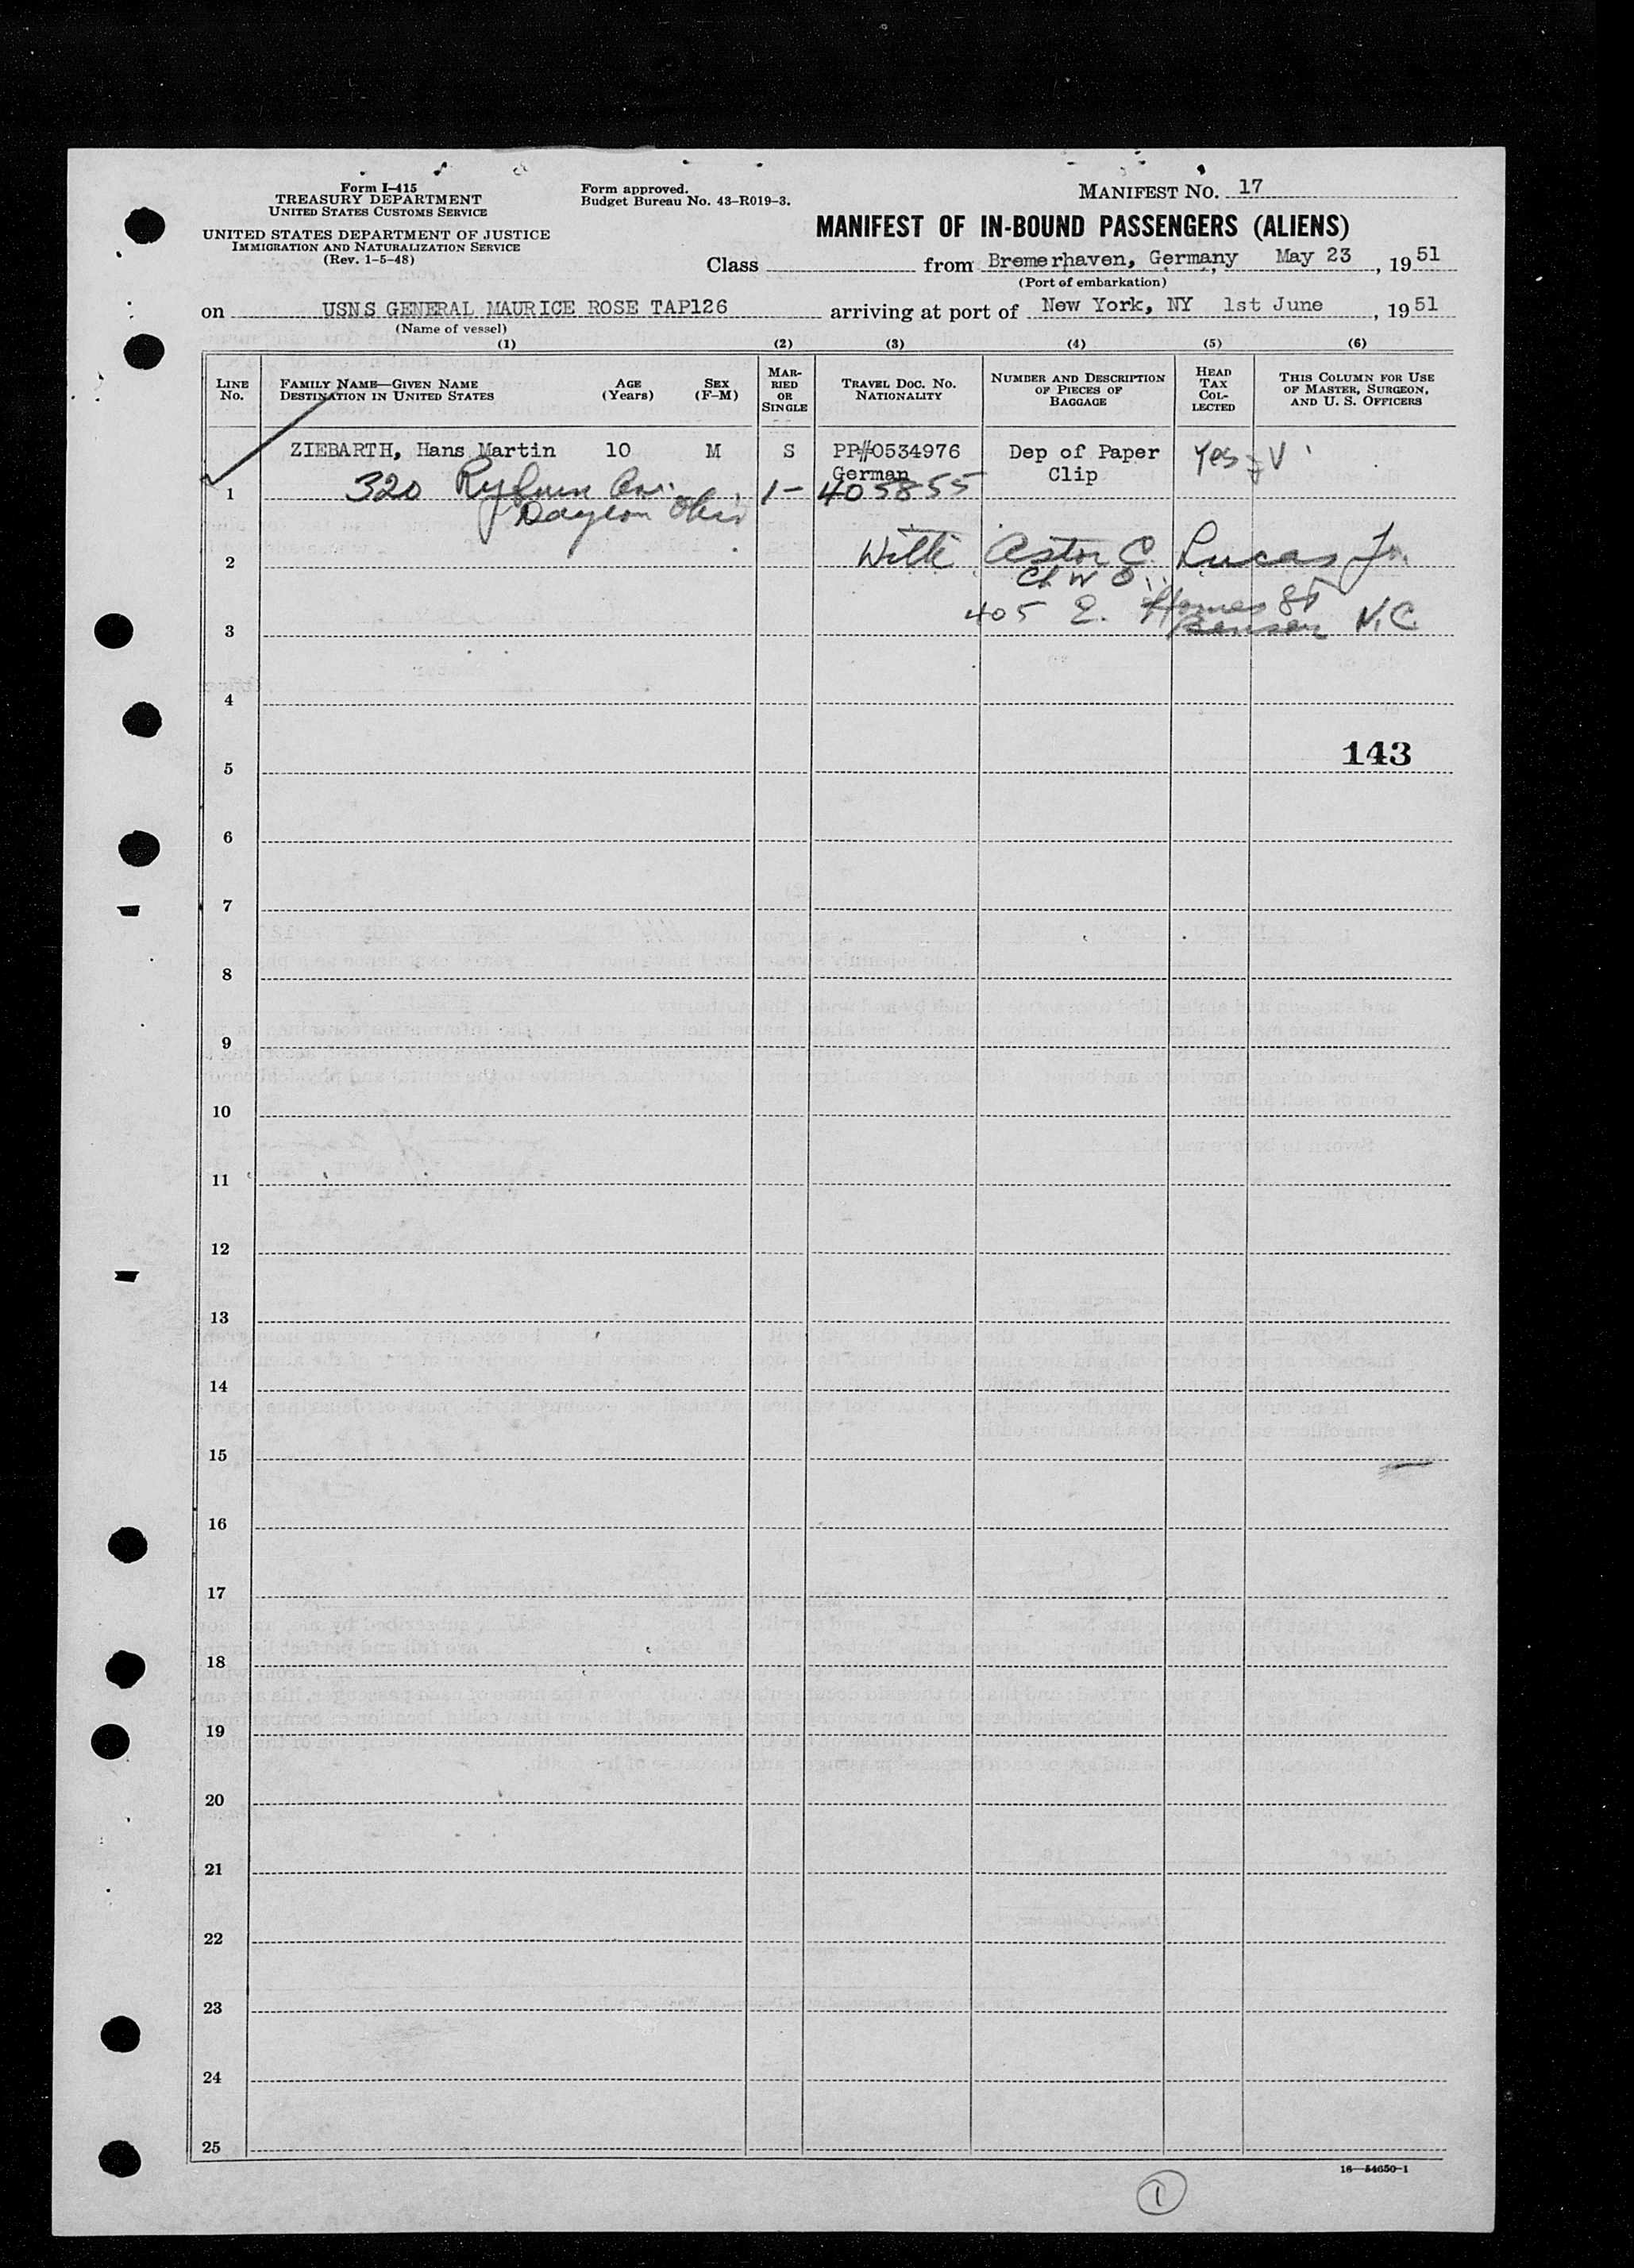 Form I-415
TREASURY DEPARTMENT
UNITED STATES CUSTOMS SERVICE
UNITED STATES DEPARTMENT OF JUSTICE
IMMIGRATION AND NATURALIZATION SERVICE
(Rev. 1-5-48)
Form approved.
Budget Bureau No. 43-R019-3.
MANIFEST NO. 17
MANIFEST OF IN-BOUND PASSENGERS (ALIENS)
Class from Bremerhaven, Germany May 23, 1951
(Port of embarkation)
on USNS GENERAL MAURICE ROSE TAP126 arriving at port of New York, NY 1st June, 1951
(Name of vessel)
(1) (2) (3) (4) (5) (6)
LINE No.
FAMILY NAME—GIVEN NAME
DESTINATION IN UNITED STATES
AGE (Years)
SEX (F-M)
MARRIED OR SINGLE
TRAVEL DOC. NO. NATIONALITY
NUMBER AND DESCRIPTION OF PIECES OF BAGGAGE
HEAD TAX COLLECTED
THIS COLUMN FOR USE OF MASTER, SURGEON, AND U. S. OFFICERS
ZIEBARTH, Hans Martin 10 M S PP#0534976 Dep of Paper Yes - V
German Clip
1 320 1- 405855
Dayton Ohio
2 With Astor C. Lucas Jr.
Ch W O
405 E. St
3 Benson N.C.
4
143
5
6
7
8
9
10
11
12
13
14
15
16
17
18
19
20
21
22
23
24
25
16—54650-1
1